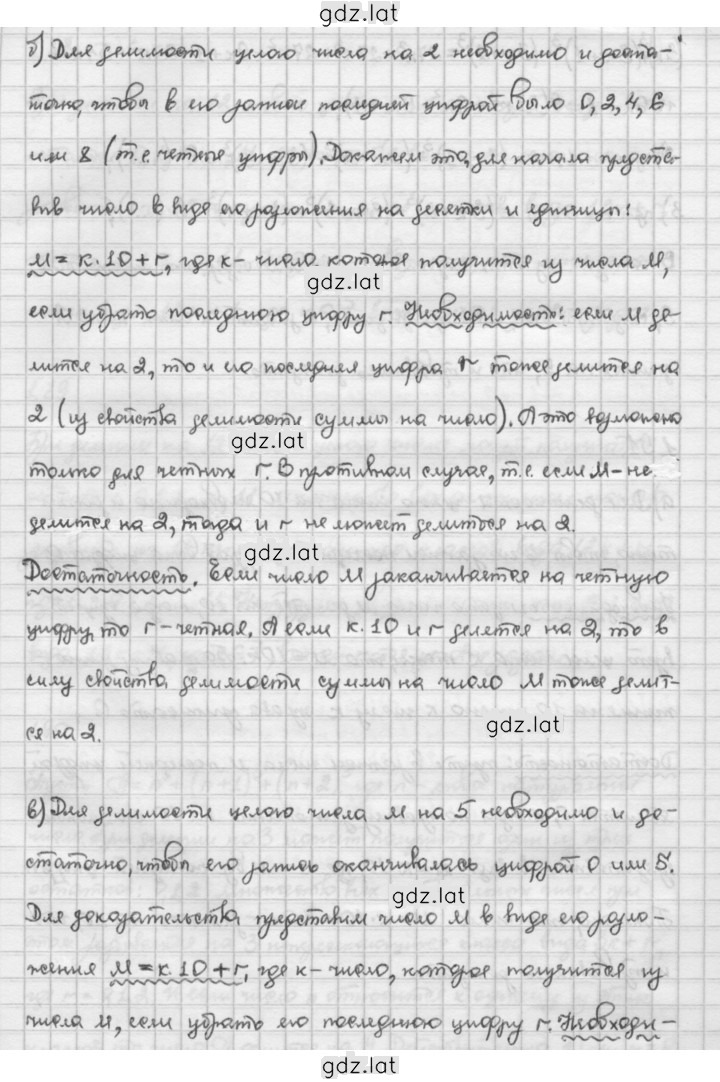 gdz.lat
б) Для делимости целого числа на 2 необходимо и доста-
точно, чтобы в его записи последней цифрой было 0, 2, 4, 6
или 8 (т.е. четные цифры). Докажем это, для начала предста-
вив число в виде его разложения на десятки и единицы:
М = к·10 + r, где к - число которое получится из числа М,
gdz.lat
если убрать последнюю цифру r. Необходимость: если М де-
лится на 2, то и его последняя цифра r тоже делится на
2 (из свойства делимости суммы на число). А это возможно
gdz.lat
только для четных r. В противном случае, т.е. если М - не
делится на 2, тогда и r не может делиться на 2.
gdz.lat
Достаточность. Если число М заканчивается на четную
цифру, то r - четная. А если к·10 и r делятся на 2, то в
силу свойства делимости суммы на число М тоже делит-
ся на 2.
gdz.lat
в) Для делимости целого числа М на 5 необходимо и до-
статочно, чтобы его запись оканчивалась цифрой 0 или 5.
gdz.lat
Для доказательства представим число М в виде его разло-
жения М = к·10 + r, где к - число, которое получится из
числа М, если убрать его последнюю цифру r. Необходи-
gdz.lat